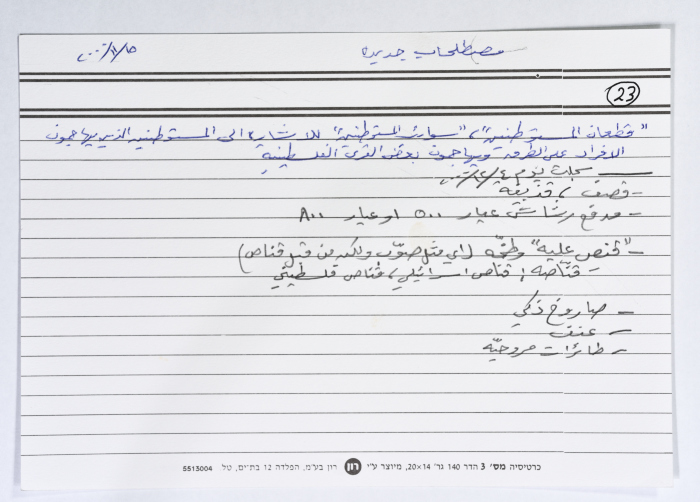 مصطلحات جديدة
23
"قطعان المستوطنين"، "سوائب المستوطنين" للاشارة الى المستوطنين الذين يهاجمون
الافراد على الطرقات ويهاجمون بعض القرى الفلسطينية
سجلت يوم
- قصف، قذيفة
- مدفع رشاش عيار ٥٠٠ او عيار ٨٠٠
- "قنص عليه" وطخّه (اي مثل صوّب ولكن من قبل قناص)
- قنّاصة: قناص اسرائيلي، قناص فلسطيني
- صاروخ ذكي
- عنف
- طائرات مروحيّه
כרטיסיה מס' 3 הדר 140 גר' 14×20, מיוצר ע"י רון רון בע"מ, הפלדה 12 בת-ים, טל 5513004